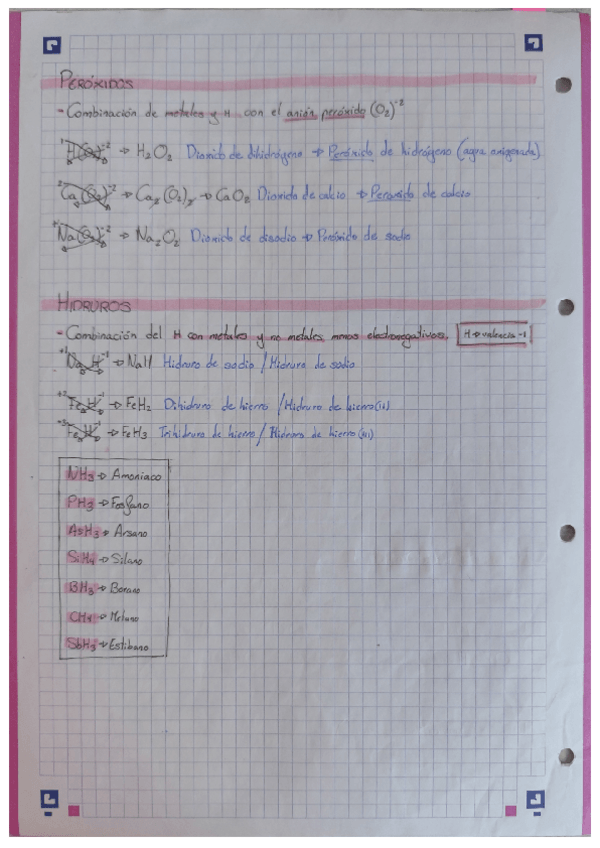 PERÓXIDOS
- Combinación de metales y H con el anión peróxido (O₂)⁻²
⁺¹H(O₂)⁻² → H₂O₂ Dioxido de dihidrógeno → Peróxido de hidrógeno (agua oxigenada)
⁺²Ca(O₂)⁻² → Ca₂(O₂)₂ → CaO₂ Dioxido de calcio → Peroxido de calcio
⁺¹Na(O₂)⁻² → Na₂O₂ Dioxido de disodio → Peróxido de sodio
HIDRUROS
- Combinación del H con metales y no metales menos electronegativos. H → valencia -1
⁺¹Na H⁻¹ → NaH Hidruro de sodio / Hidruro de sodio
⁺²Fe H⁻¹ → FeH₂ Dihidruro de hierro / Hidruro de hierro (II)
⁺³Fe H⁻¹ → FeH₃ Trihidruro de hierro / Hidruro de hierro (III)
NH₃ → Amoniaco
PH₃ → Fosfano
AsH₃ → Arsano
SiH₄ → Silano
BH₃ → Borano
CH₄ → Metano
SbH₃ → Estibano